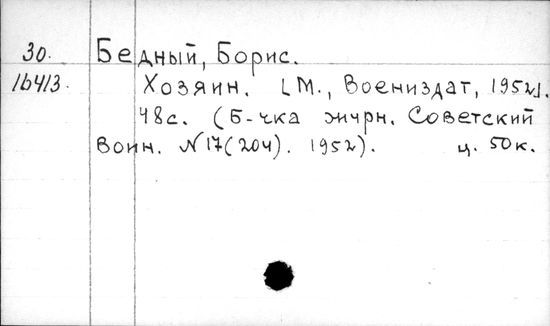 30. Бедный, Борис.
16413. Хозяин. [М., Воениздат, 1952].
48с. (Б-чка журн. Советский
Воин. №17(204). 1952). ц. 50к.